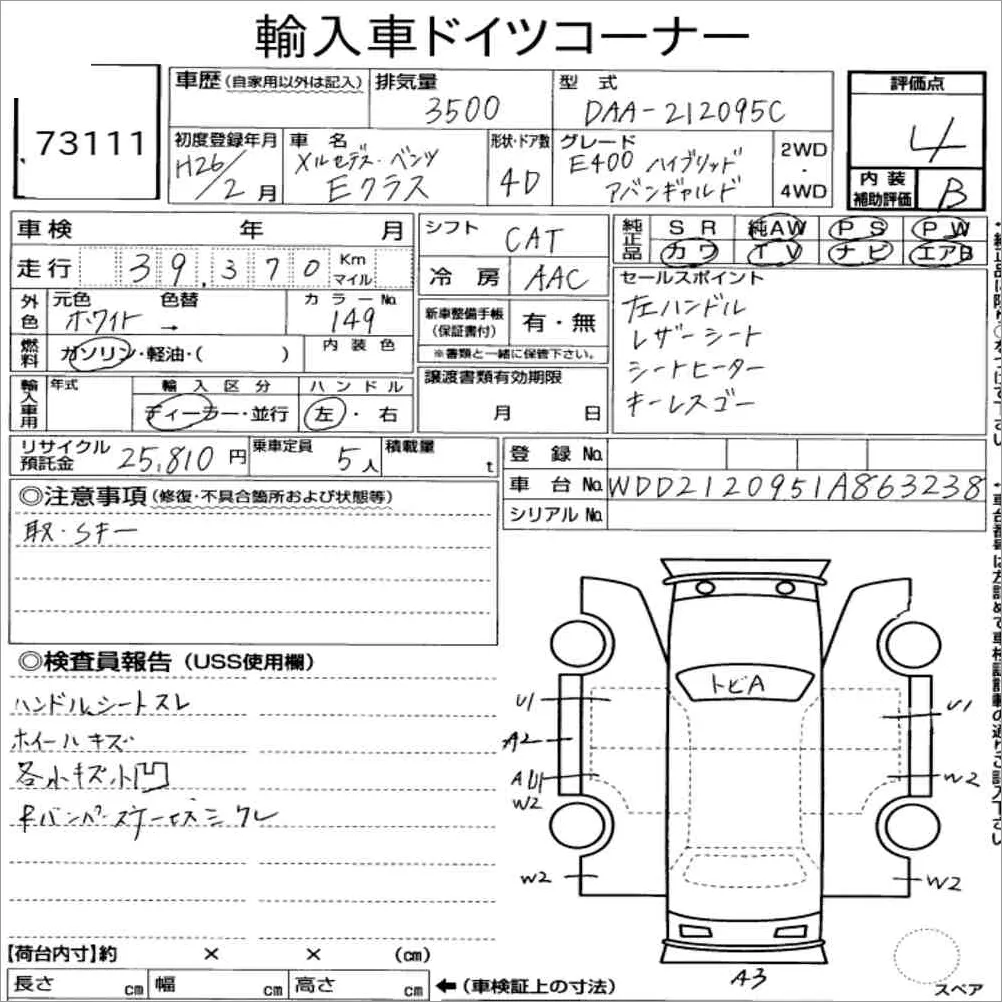 輸入車ドイツコーナー
73111
車歴 (自家用以外は記入)
排気量
3500
型 式
DAA-212095C
評価点
4
初度登録年月
H26/2月
車 名
メルセデス・ベンツ
Eクラス
形状・ドア数
4D
グレード
E400 ハイブリッド
アバンギャルド
2WD
・
4WD
内 装
補助評価
B
車検 年 月
走行 39,370 Km
マイル
シフト
CAT
冷 房
AAC
純正品
SR 純AW PS PW
カワ TV ナビ エアB
外色
元色
ホワイト
色替
→
カラーNo.
149
燃料
ガソリン・軽油・( )
内 装 色
新車整備手帳
(保証書付)
有・無
※書類と一緒に保管下さい。
セールスポイント
左ハンドル
レザーシート
シートヒーター
キーレスゴー
輸入車用
年式
輸 入 区 分
ディーラー・並行
ハ ン ド ル
左・右
譲渡書類有効期限
月 日
リサイクル
預託金
25,810円
乗車定員
5人
積載量
t
登 録 No.
車 台 No. WDD2120951A863238
シリアル No.
◎注意事項 (修復・不具合箇所および状態等)
取・Sキー
◎検査員報告 (USS使用欄)
ハンドル、シートスレ
ホイールキズ
各小キズ小凹
トビA
U1
A2
W2
W2
U1
W2
W2
A3
スペア
【荷台内寸】約 × × (cm)
長さ cm 幅 cm 高さ cm
←(車検証上の寸法)